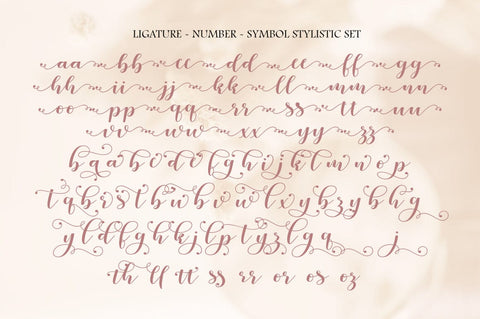 LIGATURE - NUMBER - SYMBOL STYLISTIC SET
aa bb cc dd ee ff gg
hh ii jj kk ll mm nn
oo pp qq rr ss tt uu
vv ww xx yy zz
b q a b c d f g h i j k l m n o p
t q b r s t b u b v b w b x b y z b y b h g
y l d f g h k l p t y z l g q j
th ll tt ss rr or os oz